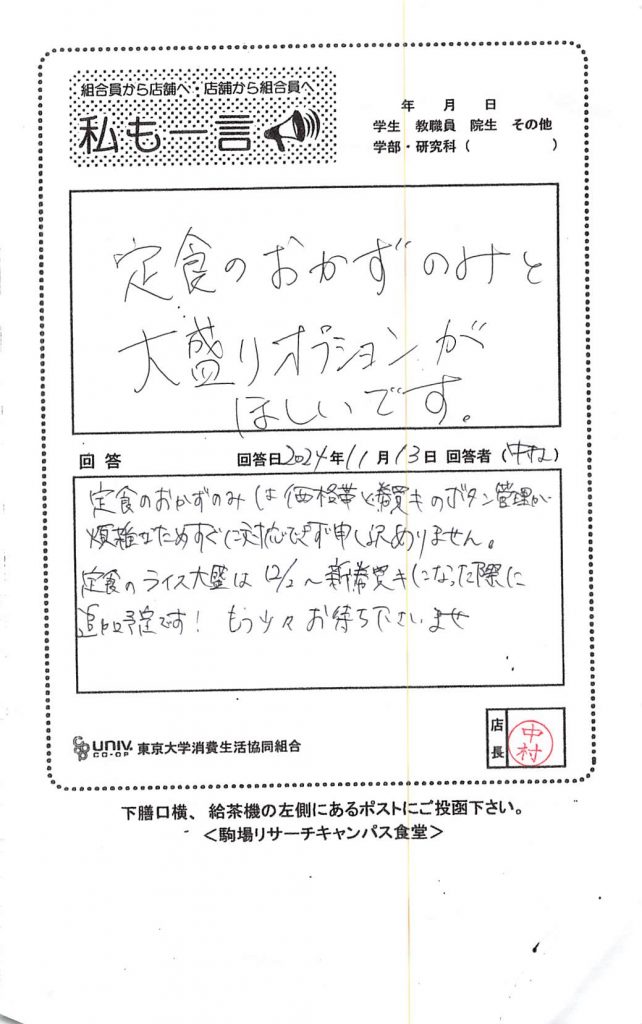 組合員から店舗へ・店舗から組合員へ
私も一言
年 月 日
学生 教職員 院生 その他
学部・研究科( )
定食のおかずのみと
大盛りオプションが
ほしいです。
回答 回答日2024年11月13日 回答者(中村)
定食のおかずのみは価格帯と券売キのボタン管理が
煩雑なためすぐに対応できず申し訳ありません。
定食のライス大盛は12/2～新券売キになった際に
追加予定です! もう少々お待ち下さいませ
UNIV.
CO-OP
東京大学消費生活協同組合
店長
中村
下膳口横、給茶機の左側にあるポストにご投函下さい。
<駒場リサーチキャンパス食堂>